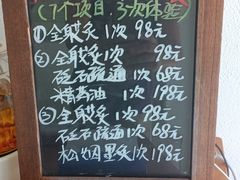 (7个项目,3次体验)
①全身灸1次 98元
②全身灸1次 98元
砭石疏通1次68元
精油1次198元
③全身灸1次 98元
砭石疏通1次68元
松烟墨灸1次198元